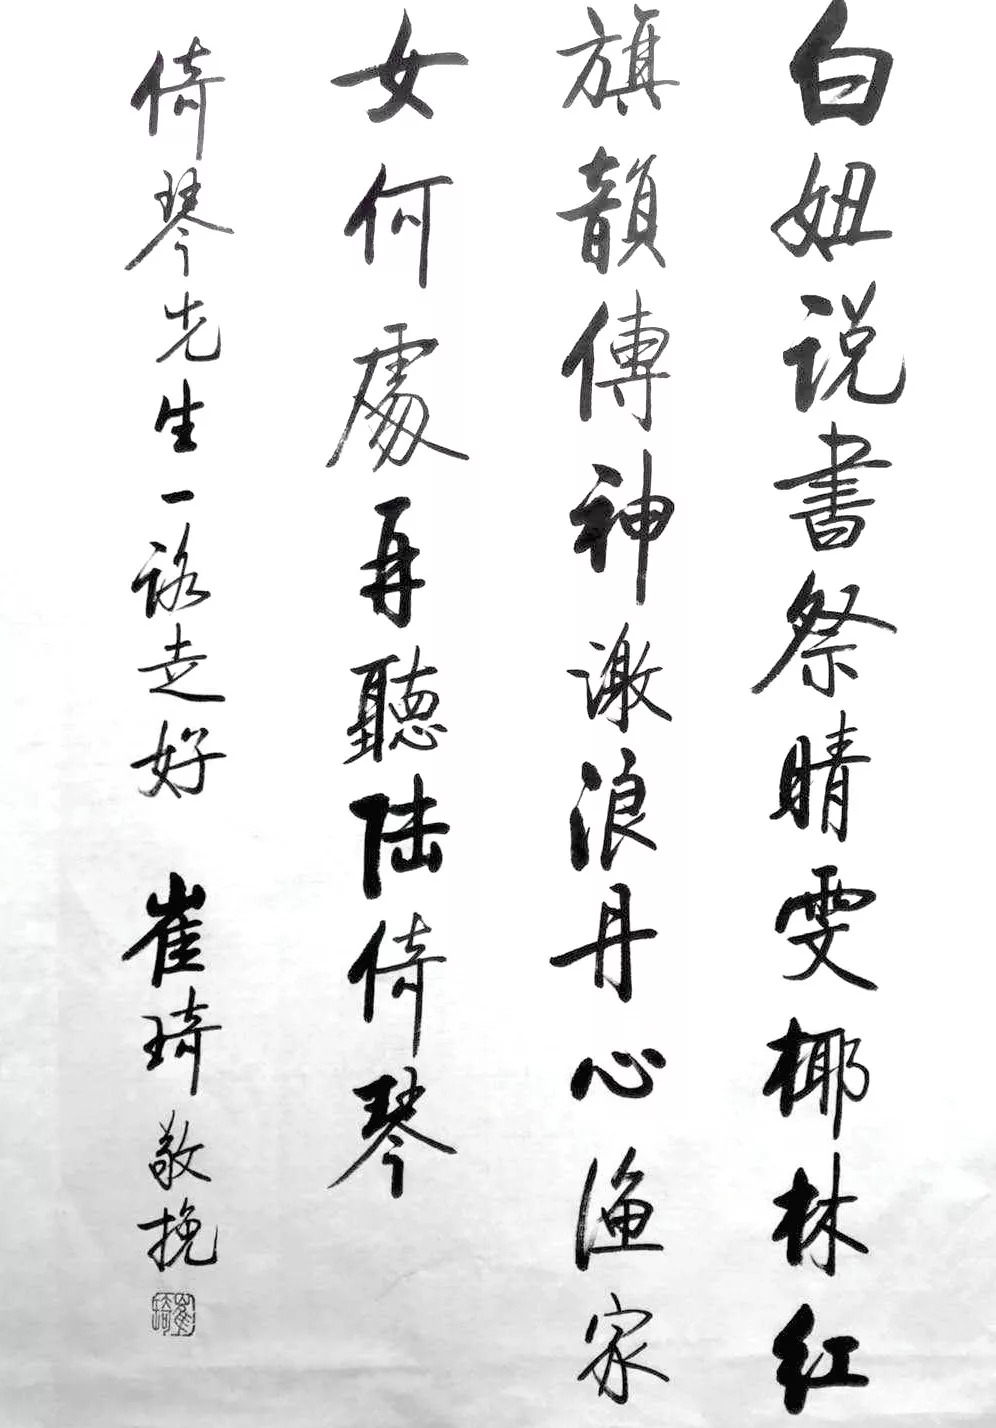 白妞说書祭晴雯椰林红
旗韻傳神激浪丹心渔家
女何處再聽陆倚琴
倚琴先生一路走好 崔琦敬挽
崔琦